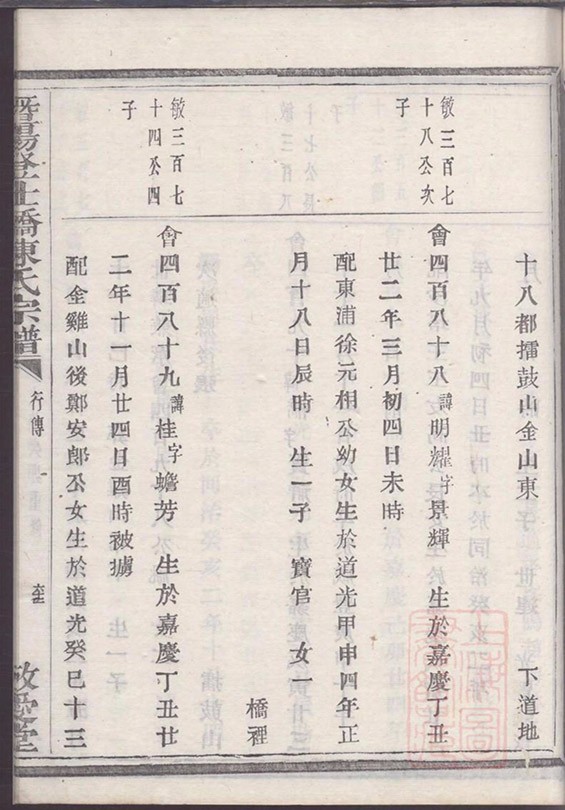 十八都擂鼓山金山東　下道地
敏三百七
十八公次
子
會四百八十八諱明耀字景輝　生於嘉慶丁丑
廿二年三月初四日未時
配東浦徐元相公幼女生於道光甲申四年正
月十八日辰時　生一子　寶官　女一
橋裡
敏三百七
十四公四
子
會四百八十九諱桂字蟾芳　生於嘉慶丁丑廿
二年十一月廿四日酉時被擄
配金雞山後鄭安郎公女生於道光癸巳十三
暨陽登仕橋陳氏宗譜
行傳
敬愛堂